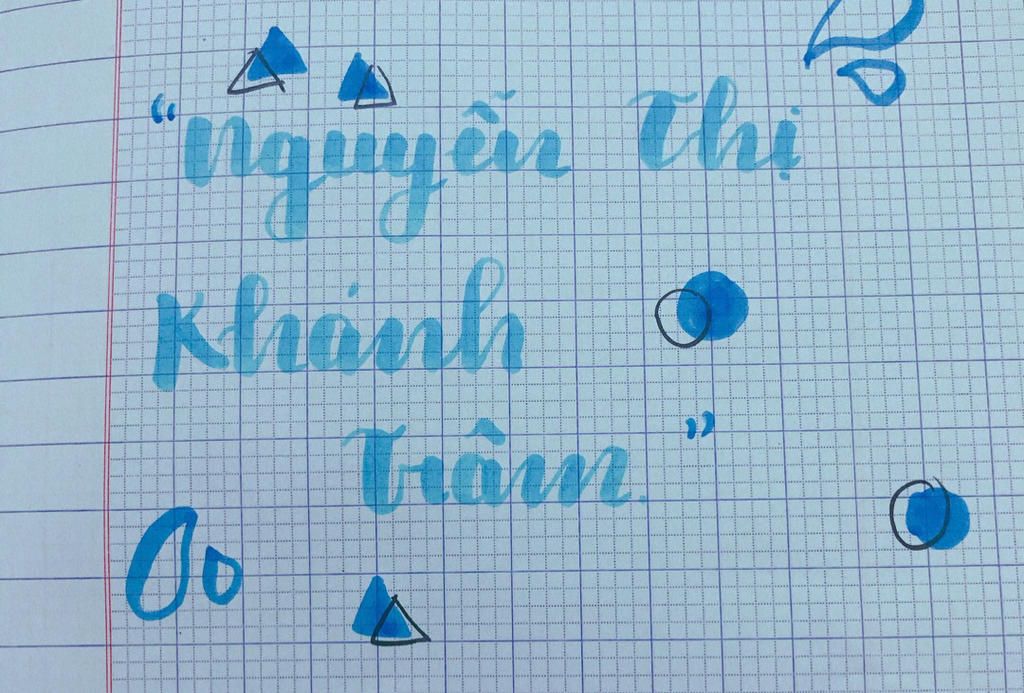 “Nguyễn Thị
Khánh
Trâm.”